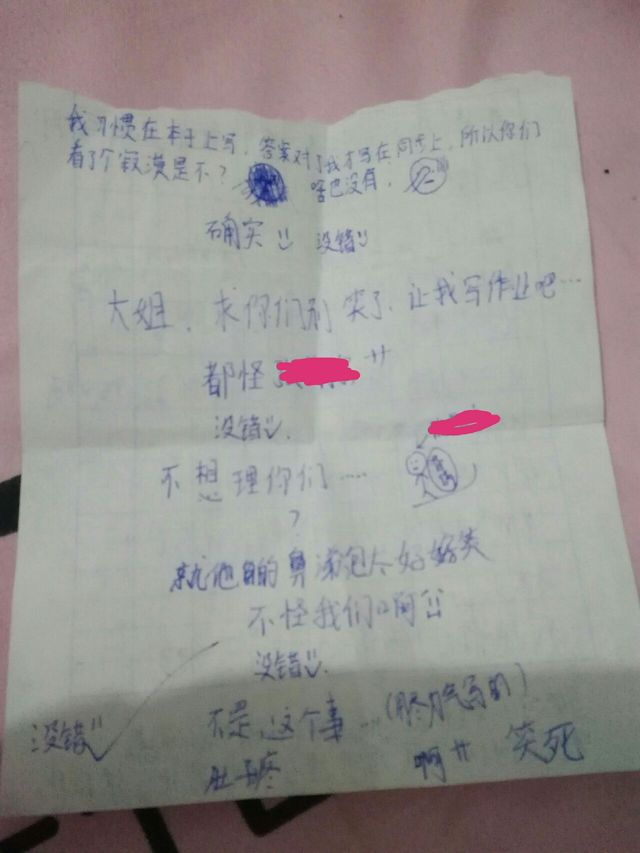 我习惯在本子上写，答案对了我才写在同步上，所以你们
看了个寂寞是不？ 啥也没有，
确实 没错
大姐，求你们别笑了，让我写作业吧…
都怪
没错
不想理你们……
？
就他的鼻涕泡太好笑
不怪我们啊
没错
没错 不是，这个事…
肚子疼 啊 笑死